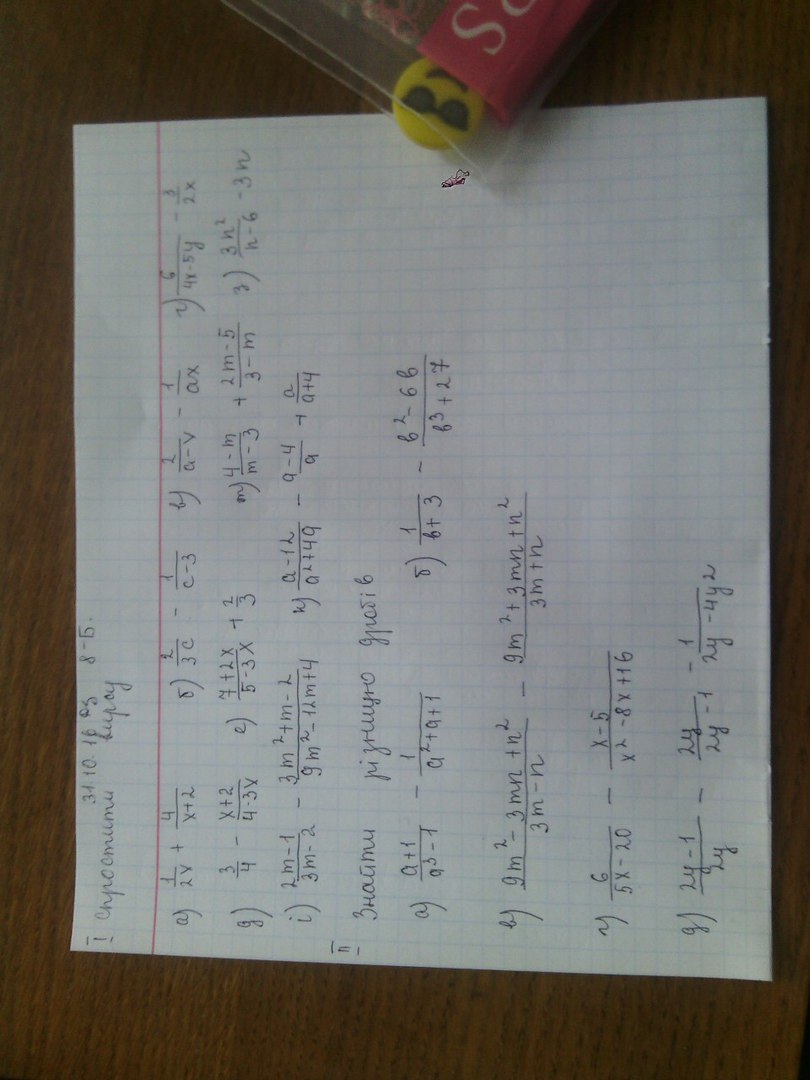 31.10.16 дз 8-Б.
I Спростити вираз
а) 1/2x + 4/x+2 б) 2/3c - 1/c-3 в) 2/a-x - 1/ax г) 6/4x-5y - 3/2x
д) 3/4 - x+2/4-3x е) 7+2x/5-3x + 2/3 ж) 4-m/m-3 + 2m-5/3-m з) 3n²/n-6 - 3n
і) 2m-1/3m-2 - 3m²+m-2/9m²-12m+4 к) a-12/a²+4a - a-4/a + a/a+4
II Знайти різницю дробів
а) a+1/a³-1 - 1/a²+a+1 б) 1/b+3 - b²-6b/b³+27
в) 9m²-3mn+n²/3m-n - 9m²+3mn+n²/3m+n
г) 6/5x-20 - x-5/x²-8x+16
д) 2y-1/2y - 2y/2y-1 - 1/2y-4y2